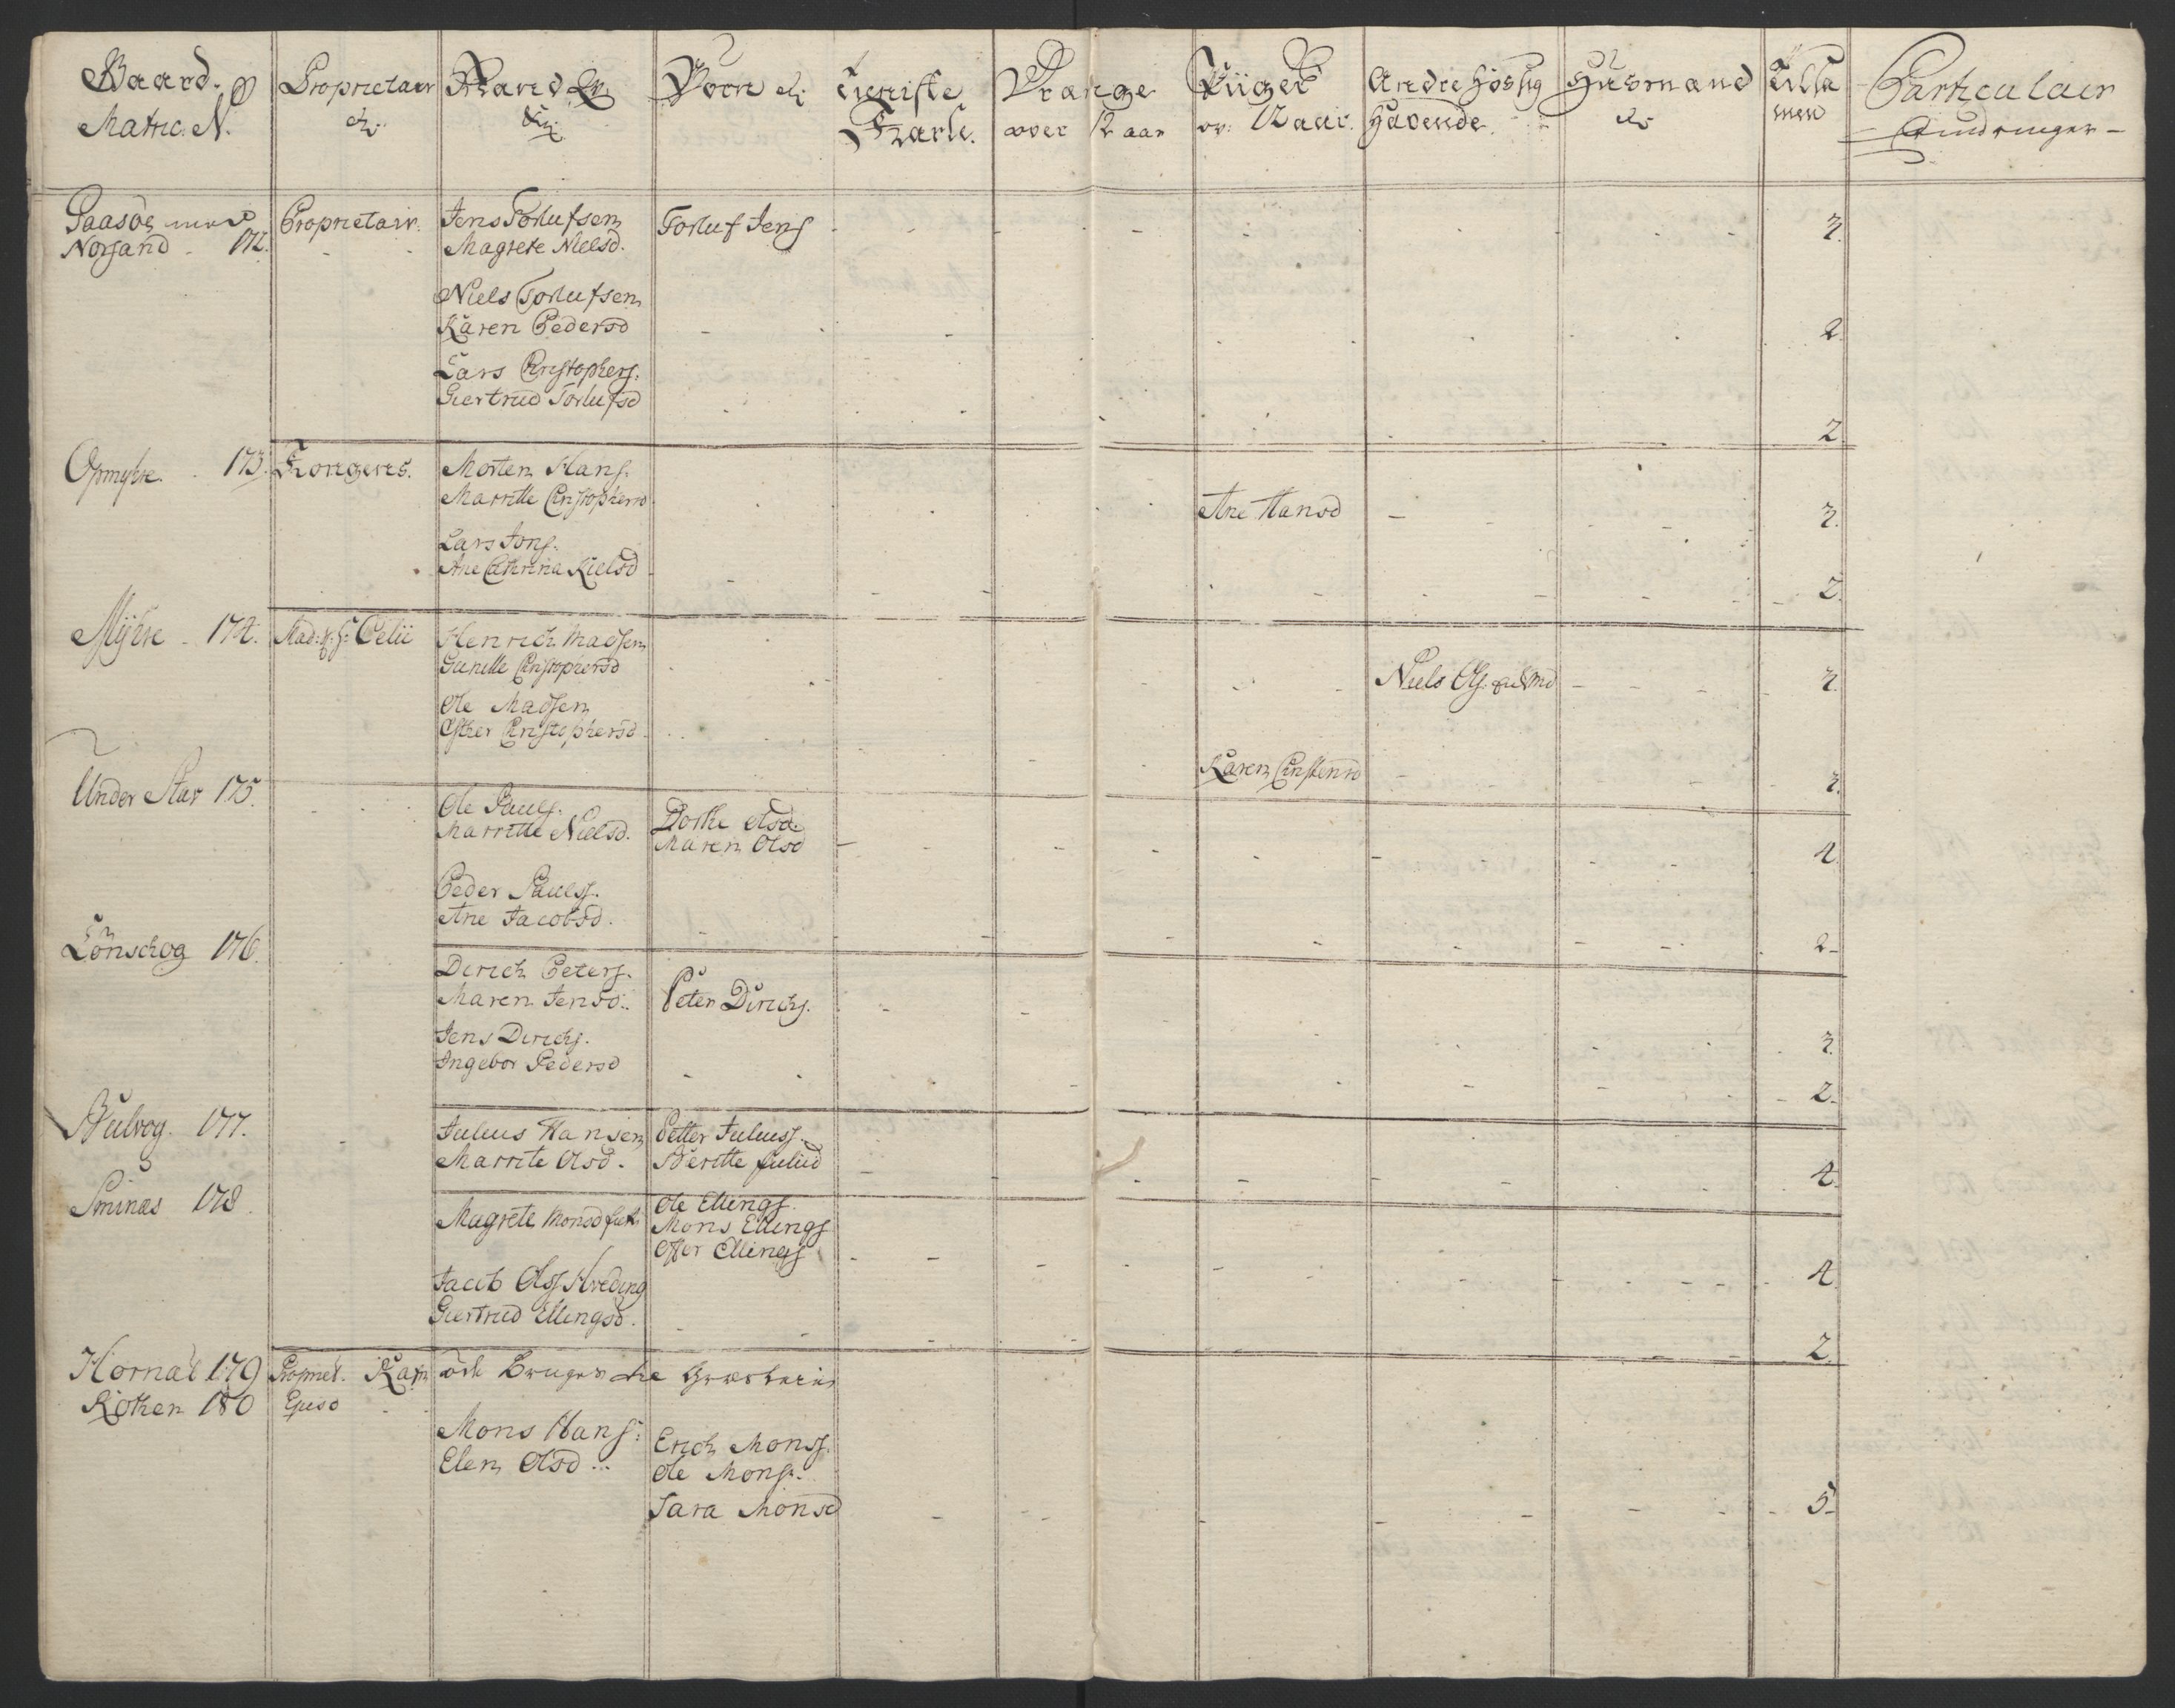 Gaard.
Matric. N.
Proprietair
Mand
Børn
Tieniste
Karle.
Drænge
over 12 aar
Piiger
ov: 12 aar.
Andre hos sig
Havende.
Huusmænd
Tilsa
men
Particulair
Gaasøe med
Norsand - 172.
Proprietair.
Jens Torlufsen
Magrete Nielsd.
Torluf Jens
3.
Niels Torlufsen
Karen Pedersd
2.
Lars Christophers.
Giertrud Torlufsd
2.
Opmyhre. 173.
Kongens.
Morten Hans.
Marritte Christophersd
Ane Hansd
3.
Lars Jons.
Ane Cathrina Nielsd
2.
Myhre - 174.
Henrich Madsen
Gunille Christophersd
Niels Ols.
3.
Ole Madsen
Esther Christophersd
Karen Christensd
3.
Under Star 175.
Ole Pauls.
Marritte Nielsd.
Dorthe Olsd
Maren Olsd
4.
Peder Paulss.
Ane Jacobsd.
2-
Lønschog 176.
Dirich Peters.
Maren Jensd.
Peter Dirichs.
3.
Jens Dirichs.
Ingebor Pedersd
2.
Bulvog. 177.
Julius Hansen
Marrite Olsd.
Petter Juliuss.
Beritte Juliud
4.
Sminæs 178.
Magrete Monsd
Ole Ellings.
Mons Ellings
Offer Ellings
4.
Jacob Olss Hreding
Giertrud Ellingsd.
2.
Hornæs 179
Propriet.
øde Bruges
Kohen 180
Mons Hans:
Elen Olsd
Erich Monss.
Ole Mons.
Sara Monsd
5-